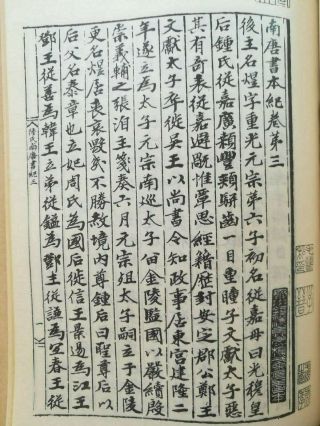 南唐書本紀卷第三
後主名煜字重光元宗第六子初名從嘉母曰光穆皇
后鍾氏從嘉廣顙豐頰駢齒一目重瞳子文獻太子惡
其有奇表從嘉避禍惟覃思經籍歷封安定郡公鄭王
文獻太子卒徙吳王以尚書令知政事居東宮建隆二
年遂立為太子元宗南巡太子留金陵監國以嚴續殷
崇義輔之張洎主箋奏六月元宗殂太子嗣立于金陵
更名煜居喪哀毀幾不勝赦境內尊鍾后曰聖尊后以
后父名泰章也立妃周氏為國后徙信王景逷為江王
鄧王從善為韓王立弟從鎰為鄧王從謙為宜春王從
陸氏南唐書紀三